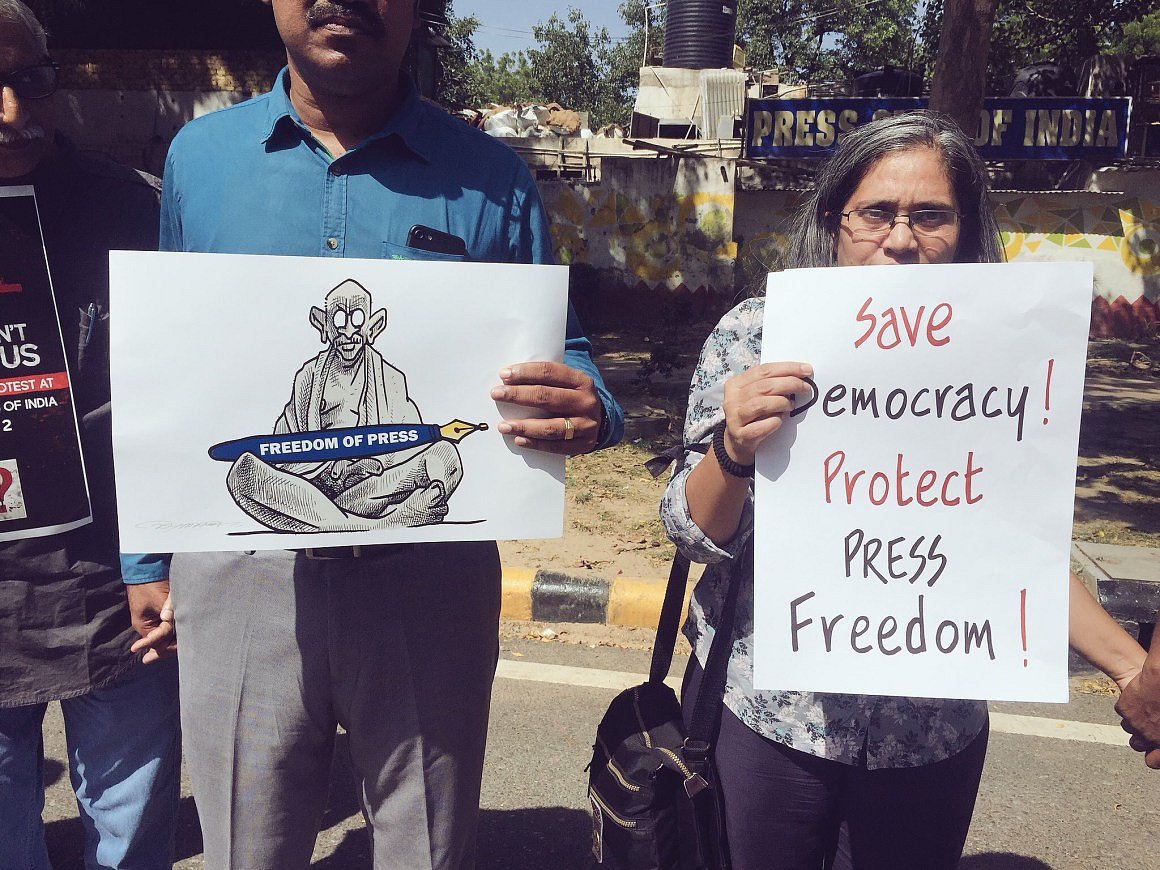 PRESS OF INDIA
N'T
US
OTEST AT
OF INDIA
2
FREEDOM OF PRESS
Save
Democracy!
Protect
PRESS
Freedom!